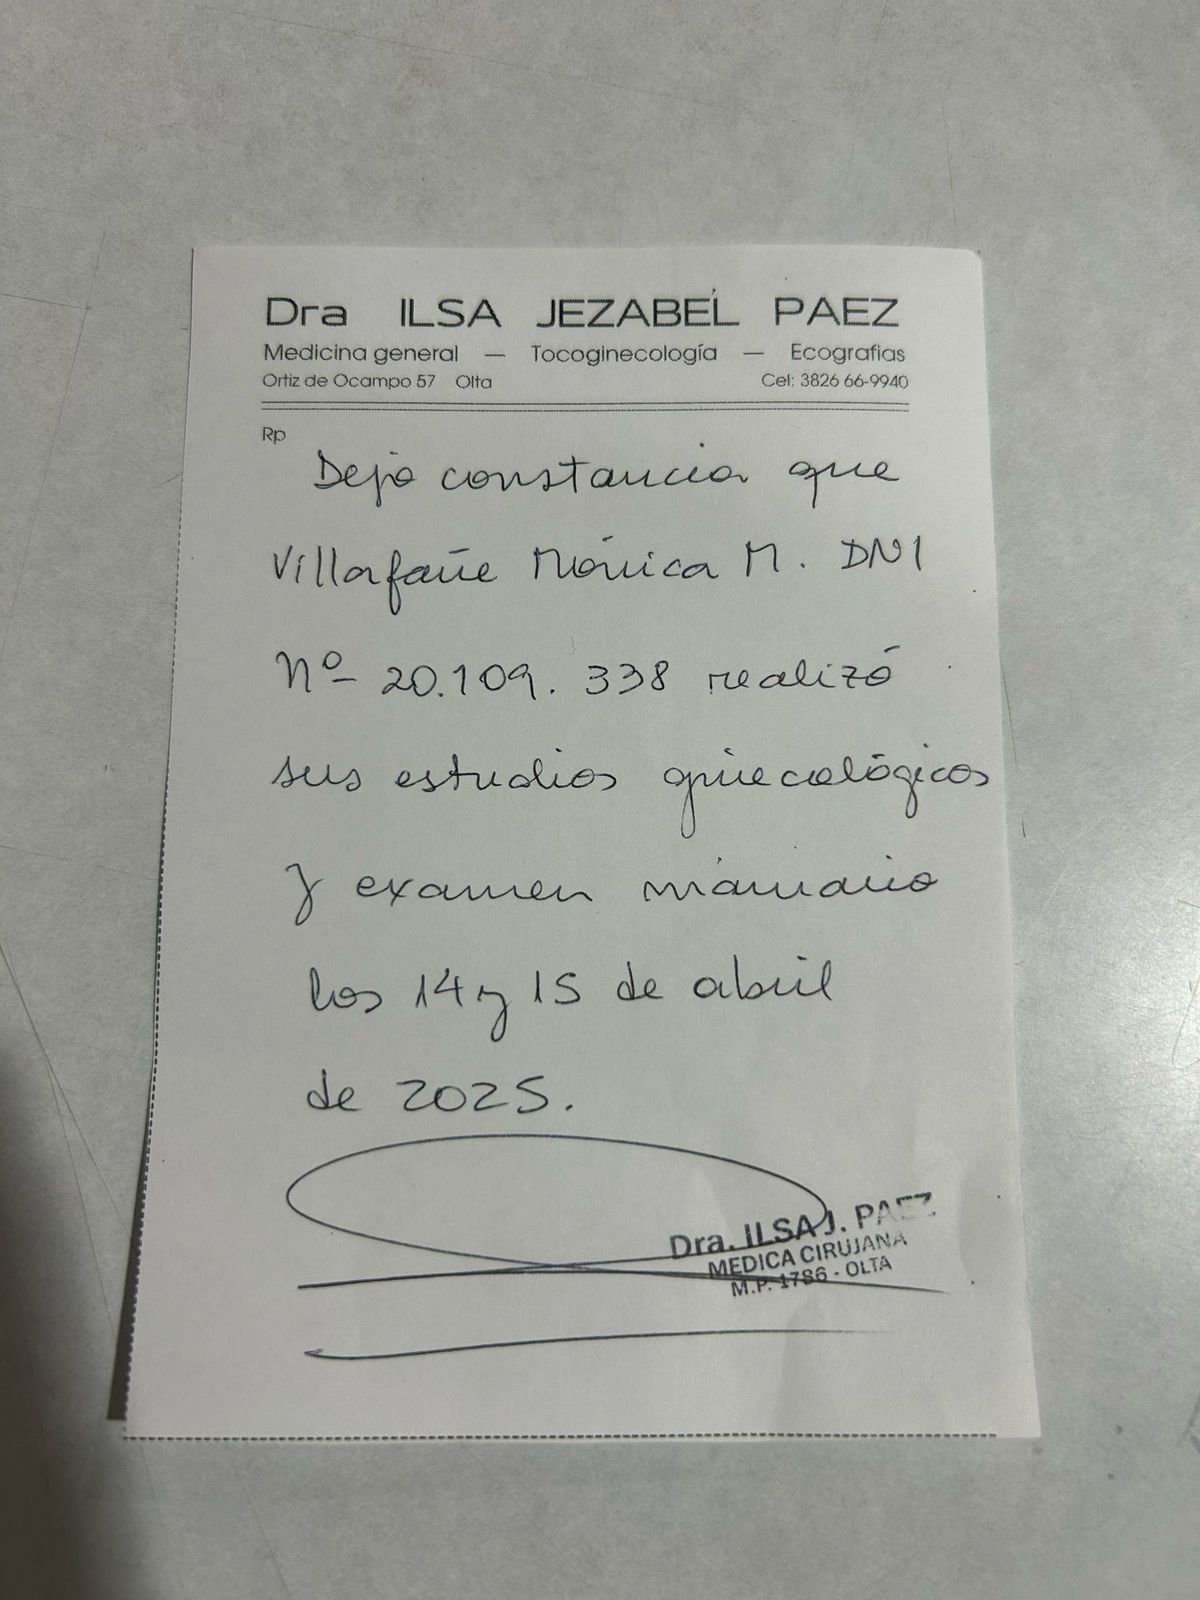 Dra ILSA JEZABEĹ PAEZ
Medicina general — Tocoginecología — Ecografias
Ortiz de Ocampo 57 Olta Cel: 3826 66-9940
Rp
Dejo constancia que
Villafañe Mónica M. DNI
Nº 20.109.338 realizó
sus estudios ginecológicos
y examen mamario
los 14 y 15 de abril
de 2025.
Dra. ILSA J. PAEZ
MEDICA CIRUJANA
M.P. 1786 - OLTA